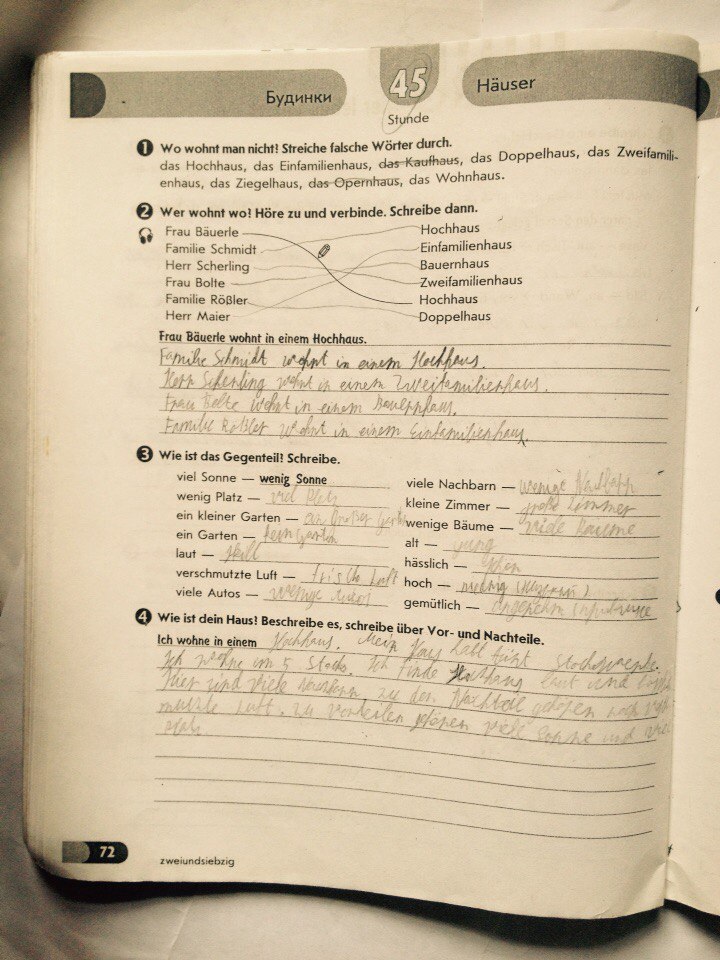 Будинки
45
Häuser
Stunde
1 Wo wohnt man nicht? Streiche falsche Wörter durch.
das Hochhaus, das Einfamilienhaus, das Kaufhaus, das Doppelhaus, das Zweifamili-
enhaus, das Ziegelhaus, das Opernhaus, das Wohnhaus.
2 Wer wohnt wo? Höre zu und verbinde. Schreibe dann.
Frau Bäuerle Hochhaus
Familie Schmidt Einfamilienhaus
Herr Scherling Bauernhaus
Frau Bolte Zweifamilienhaus
Familie Rößler Hochhaus
Herr Maier Doppelhaus
Frau Bäuerle wohnt in einem Hochhaus.
Familie Schmidt wohnt in einem Hochhaus.
Herr Scherling wohnt in einem Zweifamilienhaus.
Frau Bolte wohnt in einem Bauernhaus.
Familie Rößler wohnt in einem Einfamilienhaus.
3 Wie ist das Gegenteil? Schreibe.
viel Sonne — wenig Sonne
wenig Platz — viel Platz
ein kleiner Garten — ein großer Garten
ein Garten — kein Garten
laut — still
verschmutzte Luft — frische Luft
viele Autos — wenige Autos
viele Nachbarn — wenige
kleine Zimmer — große Zimmer
wenige Bäume — viele Baeume
alt — jung
hässlich — schön
hoch — niedrig
gemütlich —
4 Wie ist dein Haus? Beschreibe es, schreibe über Vor- und Nachteile.
Ich wohne in einem Hochhaus. Mein Haus hat Stockwerke.
Ich wohne im 5 Stock. Ich finde Hochhaus laut und
Hier sind viele zu den Nachteile gehören noch
Luft. zu Vorteilen gehören viele Sonne und
72
zweiundsiebzig